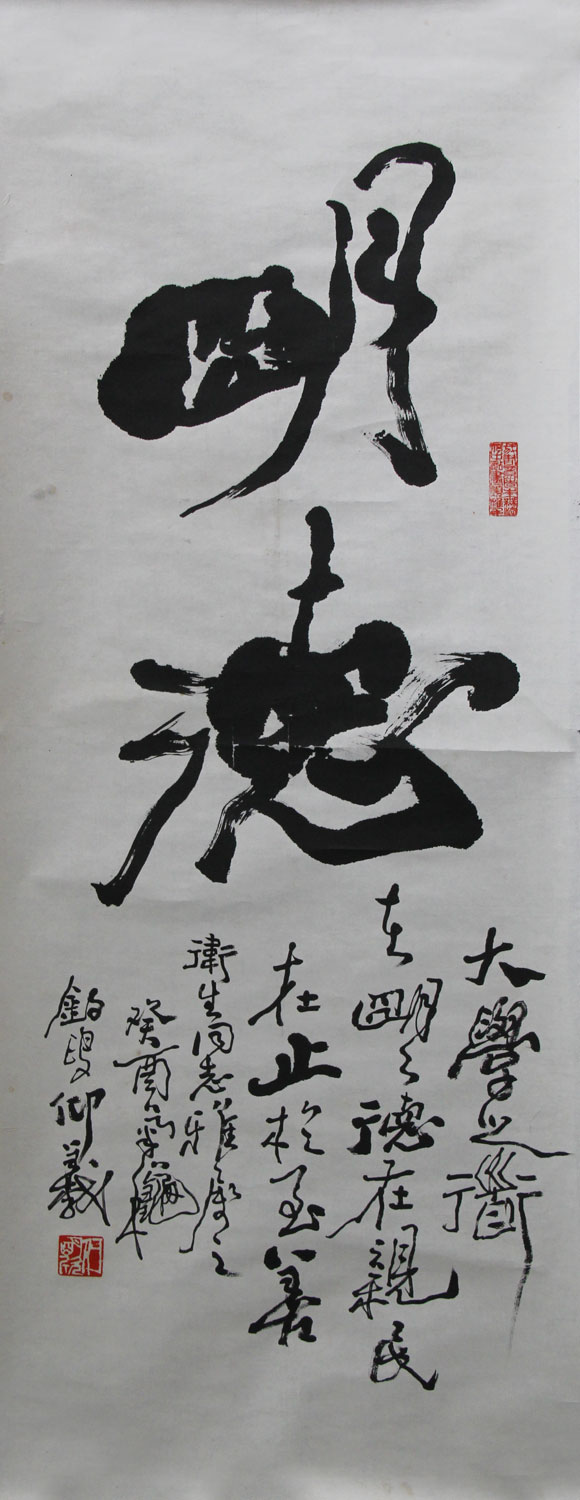 明德
大學之道
在明明德在親民
在止於至善
衛生同志雅屬之
癸酉
仰義